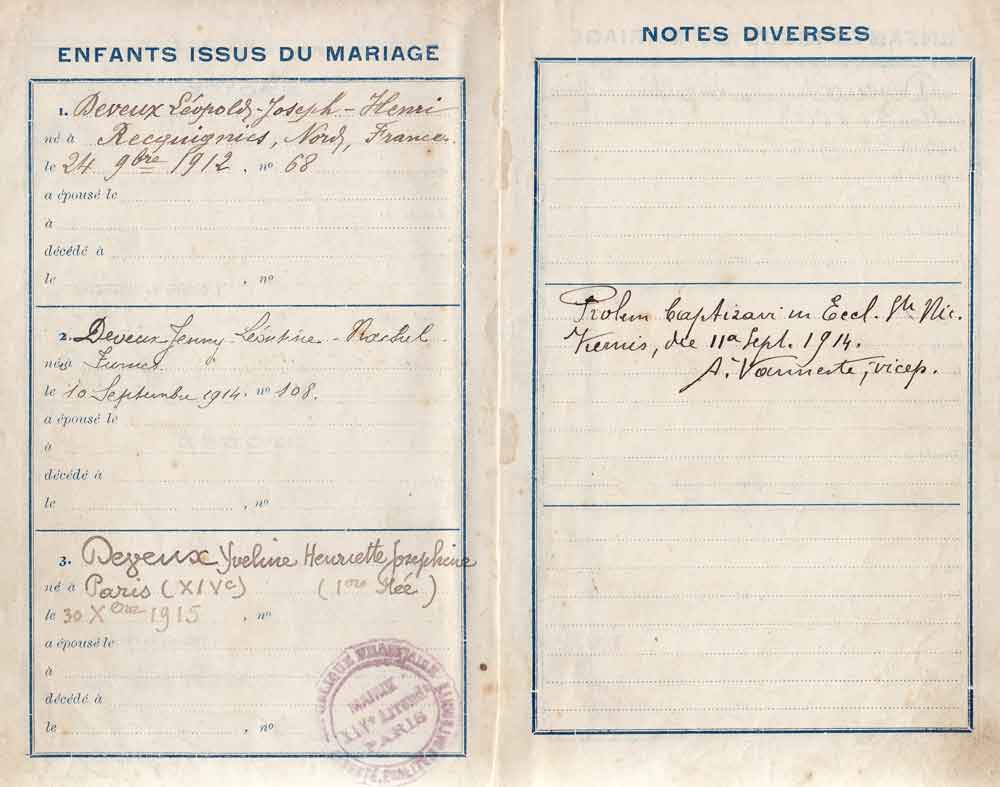 ENFANTS ISSUS DU MARIAGE
1. Deveux Léopold-Joseph-Henri
né à Recquignies, Nord, France.
le 24 9bre 1912, nº 68
a épousé le
à
décédé à
le , nº
2. Deveux Jenny-Léontine-Rachel
né à Furnes
le 10 Septembre 1914. nº 108.
a épousé le
à
décédé à
le , nº
3. Deveux Yveline Henriette Joséphine
né à Paris (XIVe) (1ère Née)
le 30 Xbre 1915 , nº
a épousé le
à
décédé à
le , nº
MAIRIE
XIVe
PARIS
NOTES DIVERSES
Prolem baptizavi in Eccl. Sti Nic.
Furnis, die 11a Sept. 1914.
A. Vanneste, vicep.